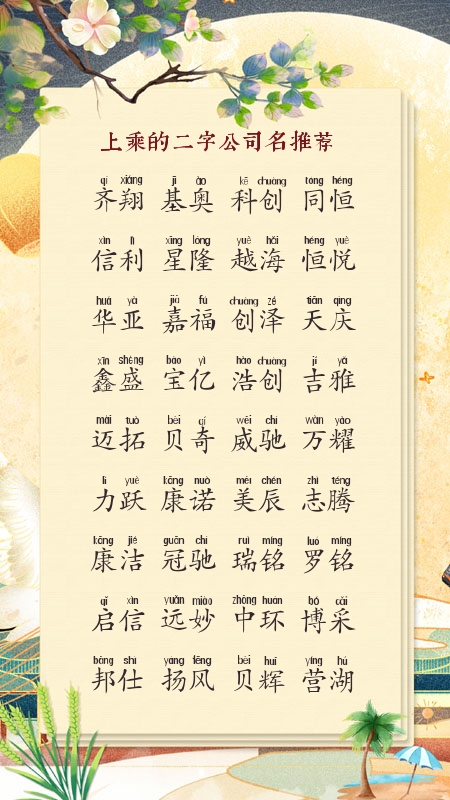 上乘的二字公司名推荐
qí xiáng jī ào kē chuàng tóng héng
齐翔 基奥 科创 同恒
xìn lì xīng lóng yuè hǎi héng yuè
信利 星隆 越海 恒悦
huá yà jiā fú chuàng zé tiān qìng
华亚 嘉福 创泽 天庆
xīn shèng bǎo yì hào chuàng jí yǎ
鑫盛 宝亿 浩创 吉雅
mài tuò bèi qí wēi chí wàn yào
迈拓 贝奇 威驰 万耀
lì yuè kāng nuò měi chén zhì téng
力跃 康诺 美辰 志腾
kāng jié guān chí ruì míng luó míng
康洁 冠驰 瑞铭 罗铭
qǐ xìn yuǎn miào zhōng huán bó cǎi
启信 远妙 中环 博采
bāng shì yáng fēng bèi huī yíng hú
邦仕 扬风 贝辉 营湖